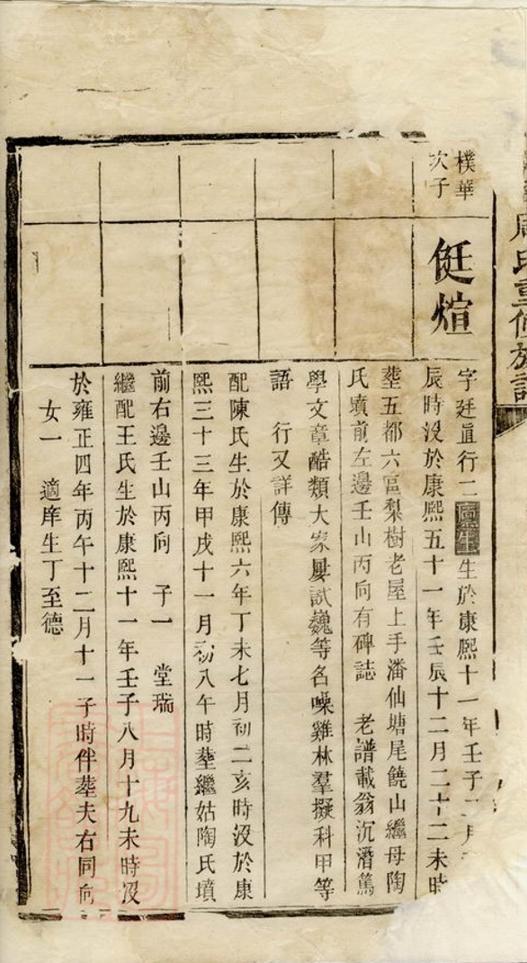 周氏重修族譜
樸華
次子
侹煊
字廷直行二國學生生於康熙十一年壬子二月
辰時沒於康熙五十一年壬辰十二月二十二未時
塟五都六區梨樹老屋上手潘仙塘尾饒山繼母陶
氏墳前左邊壬山丙向有碑誌　老譜載翁沉潛篤
學文章酷類大家屢試巍等名噪雞林羣擬科甲等
語　行又詳傳
配陳氏生於康熙六年丁未七月初二亥時沒於康
熙三十三年甲戌十一月初八午時塟繼姑陶氏墳
前右邊壬山丙向　子一　堂瑞
繼配王氏生於康熙十一年壬子八月十九未時沒
於雍正四年丙午十二月十一子時伴塟夫右同向
女一　適庠生丁至德